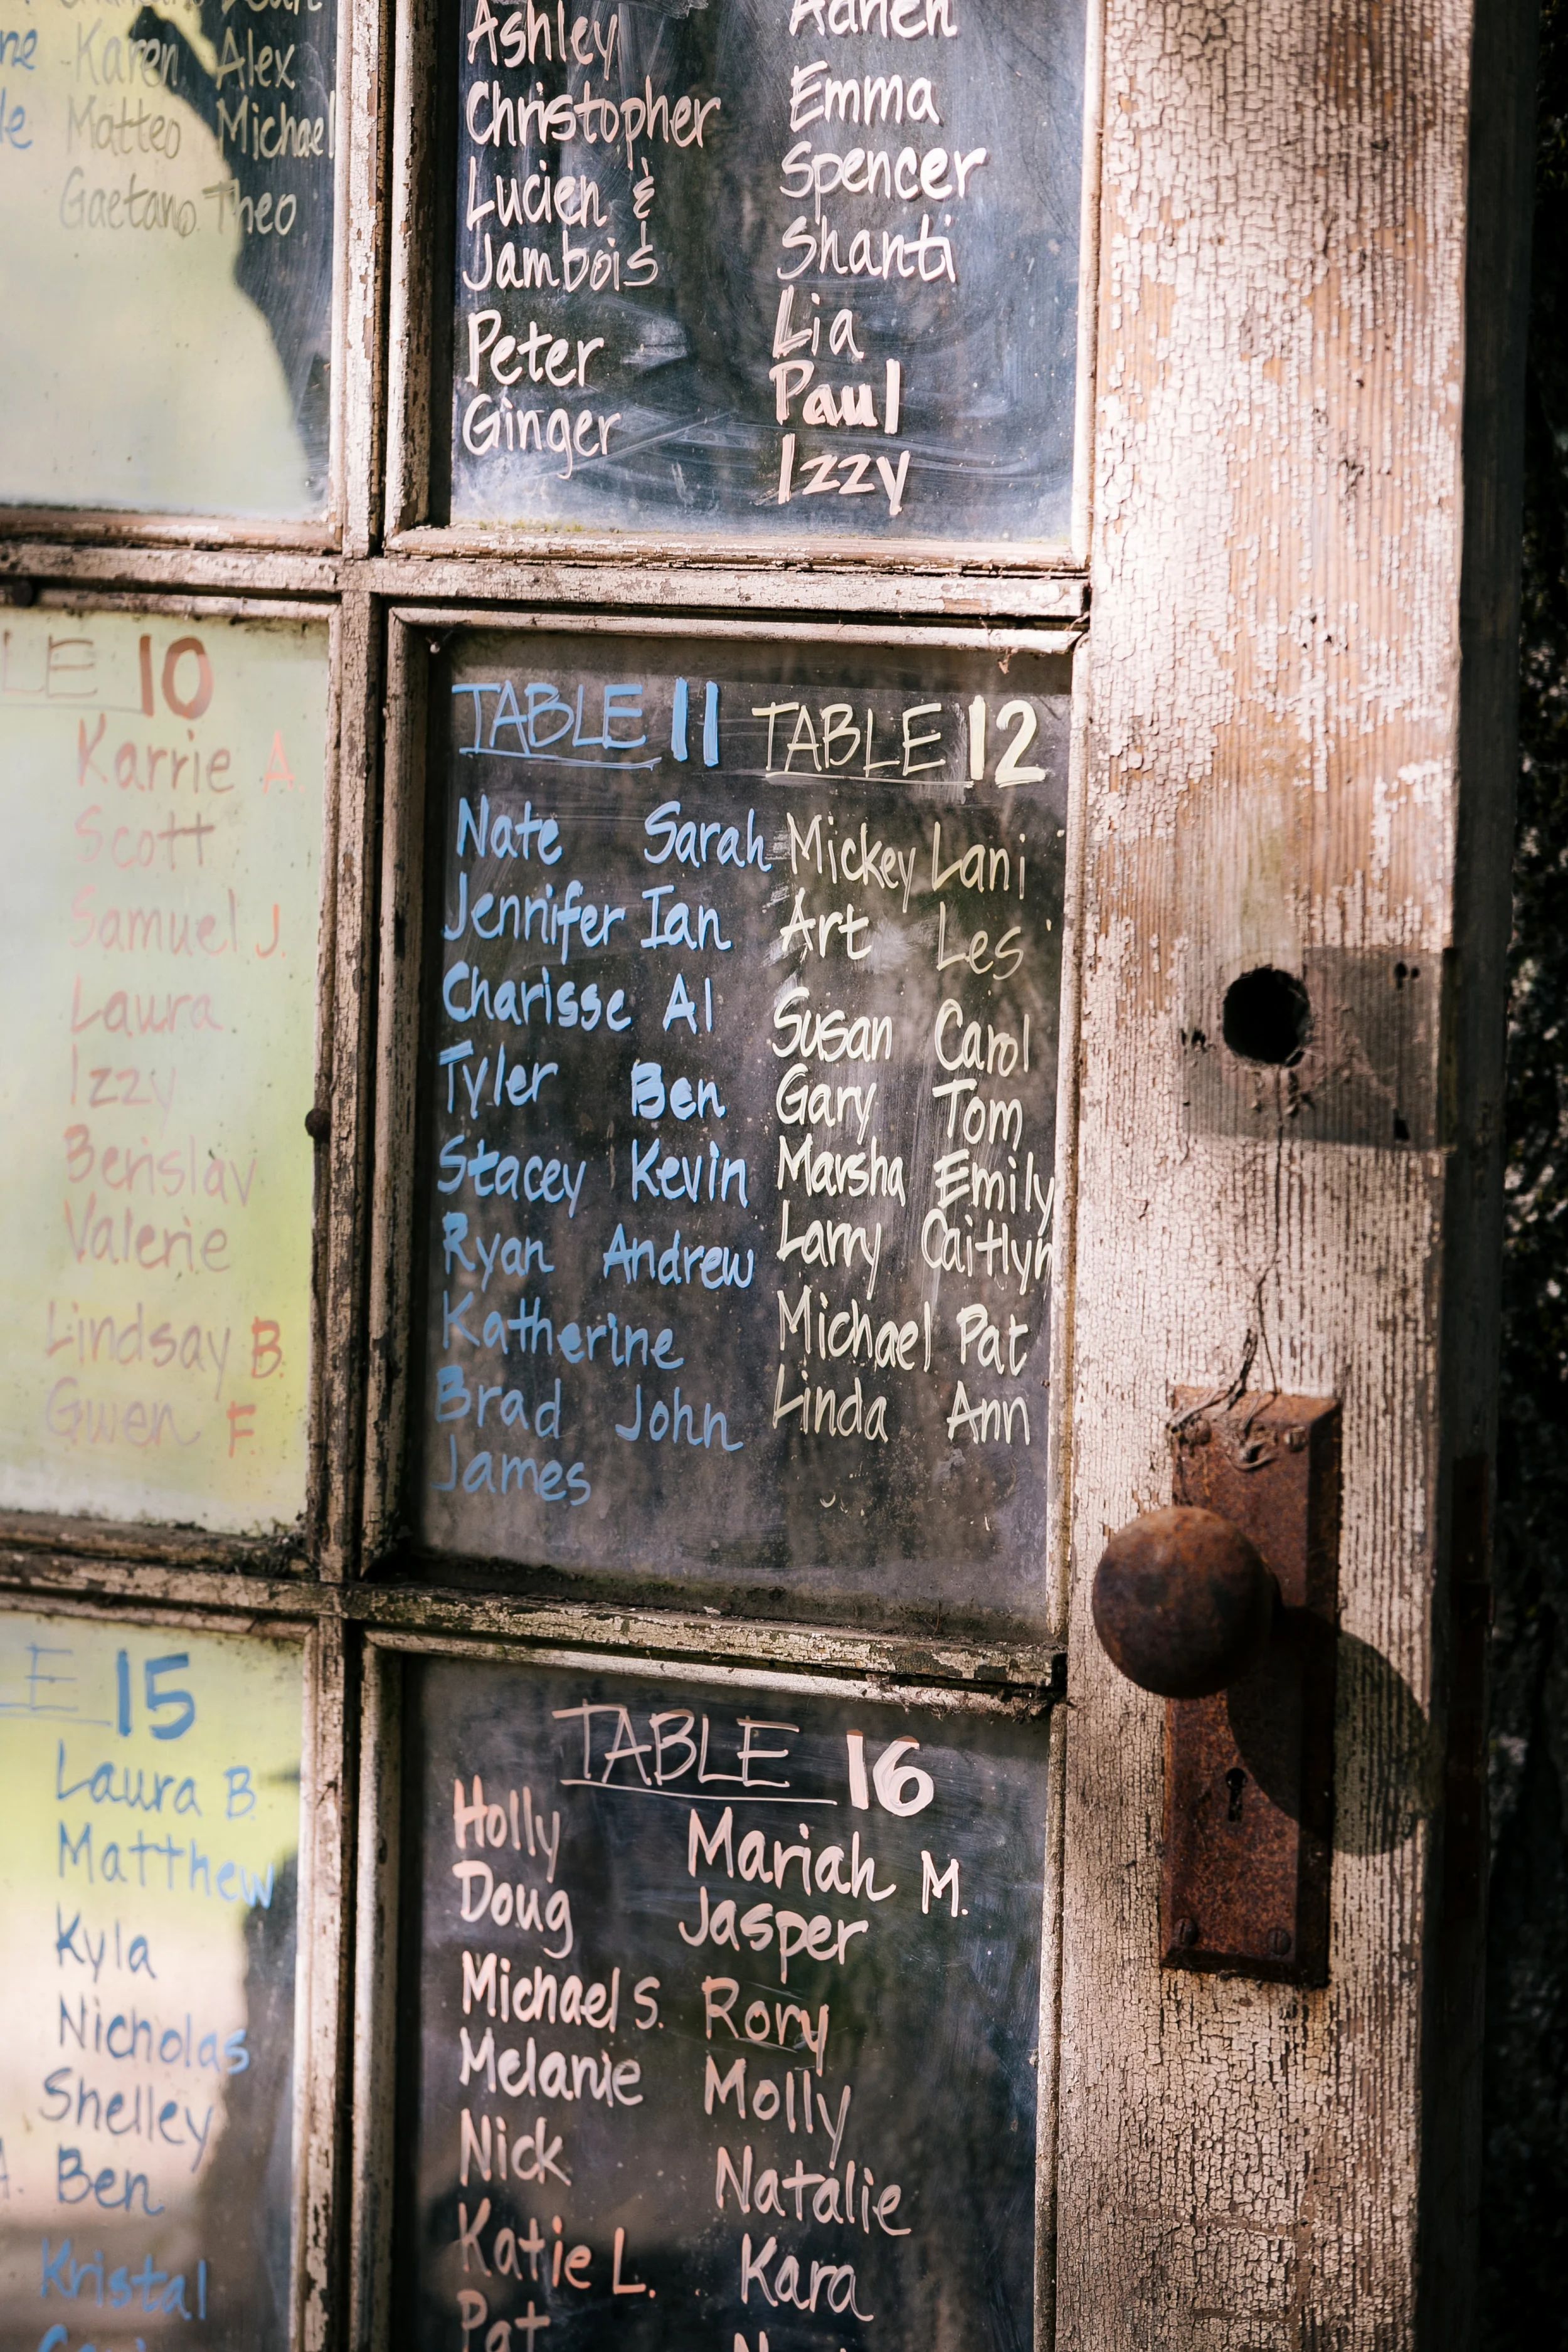 Karen Alex
Matteo Michael
Gaetano Theo
Ashley
Christopher
Lucien &
Jambois
Peter
Ginger
Adrien
Emma
Spencer
Shanti
Lia
Paul
Izzy
10
Karrie A.
Scott
Samuel J.
Laura
Izzy
Berislav
Valerie
Lindsay B.
Gwen F.
TABLE 11
Nate Sarah
Jennifer Ian
Charisse Al
Tyler Ben
Stacey Kevin
Ryan Andrew
Katherine
Brad John
James
TABLE 12
Mickey Lani
Art Les
Susan Carol
Gary Tom
Marsha Emily
Larry Caitlyn
Michael Pat
Linda Ann
15
Laura B.
Matthew
Kyla
Nicholas
Shelley
Ben
Kristal
TABLE 16
Holly Mariah M.
Doug Jasper
Michael S. Rory
Melanie Molly
Nick Natalie
Katie L. Kara
Pat